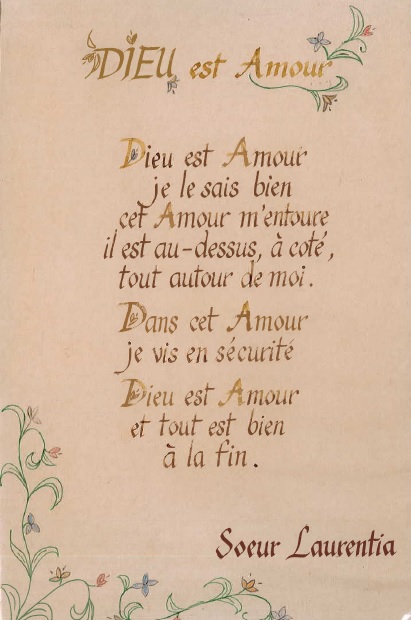 DIEU est Amour
Dieu est Amour
je le sais bien
cet Amour m'entoure
il est au-dessus, à coté,
tout autour de moi.
Dans cet Amour
je vis en sécurité
Dieu est Amour
et tout est bien
à la fin.
Soeur Laurentia